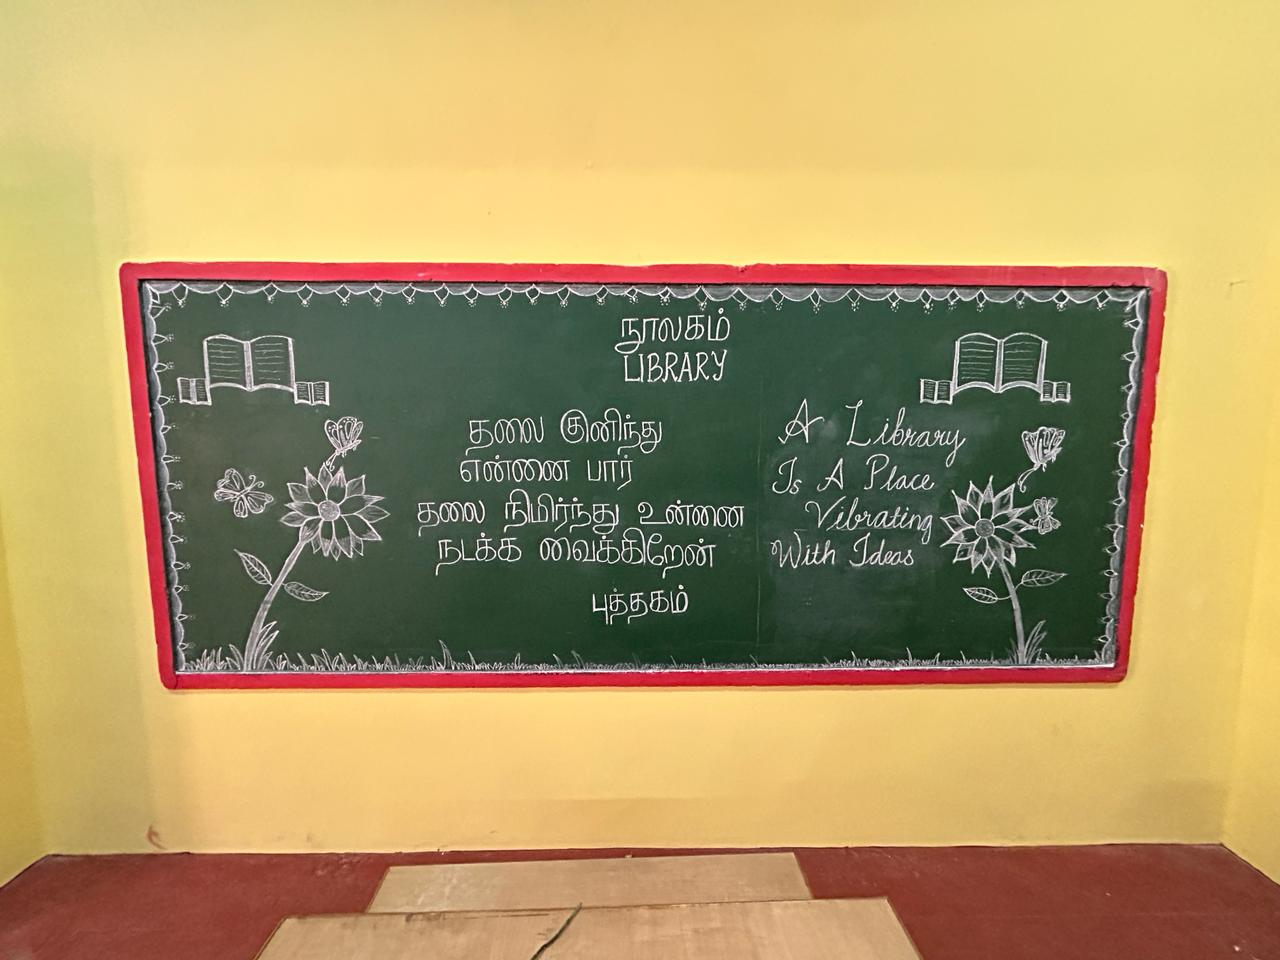 நூலகம்
LIBRARY
தலை குனிந்து
என்னை பார்
தலை நிமிர்ந்து உன்னை
நடக்க வைக்கிறேன்
புத்தகம்
A Library
Is A Place
Vibrating
With Ideas